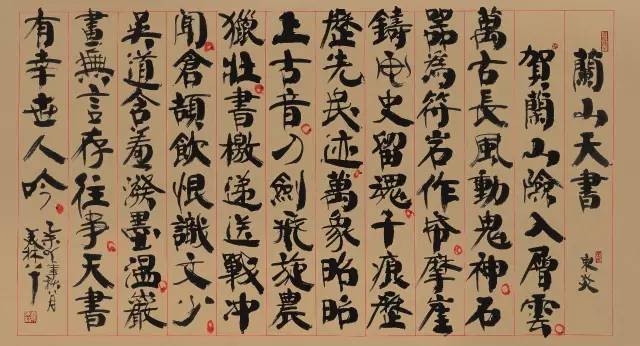 蘭山天書
東炎
賀蘭山險入層雲
萬古長風動鬼神石
器為符岩作帋摩崖
鑄史留魂千痕歷
歷先民迹萬象昭昭
上古音刀劍飛旋農
獵壯書檄遞送戰冲
聞倉頡飲恨識文少
吳道含羞潑墨温巖
畫無言存往事天書
有幸世人吟